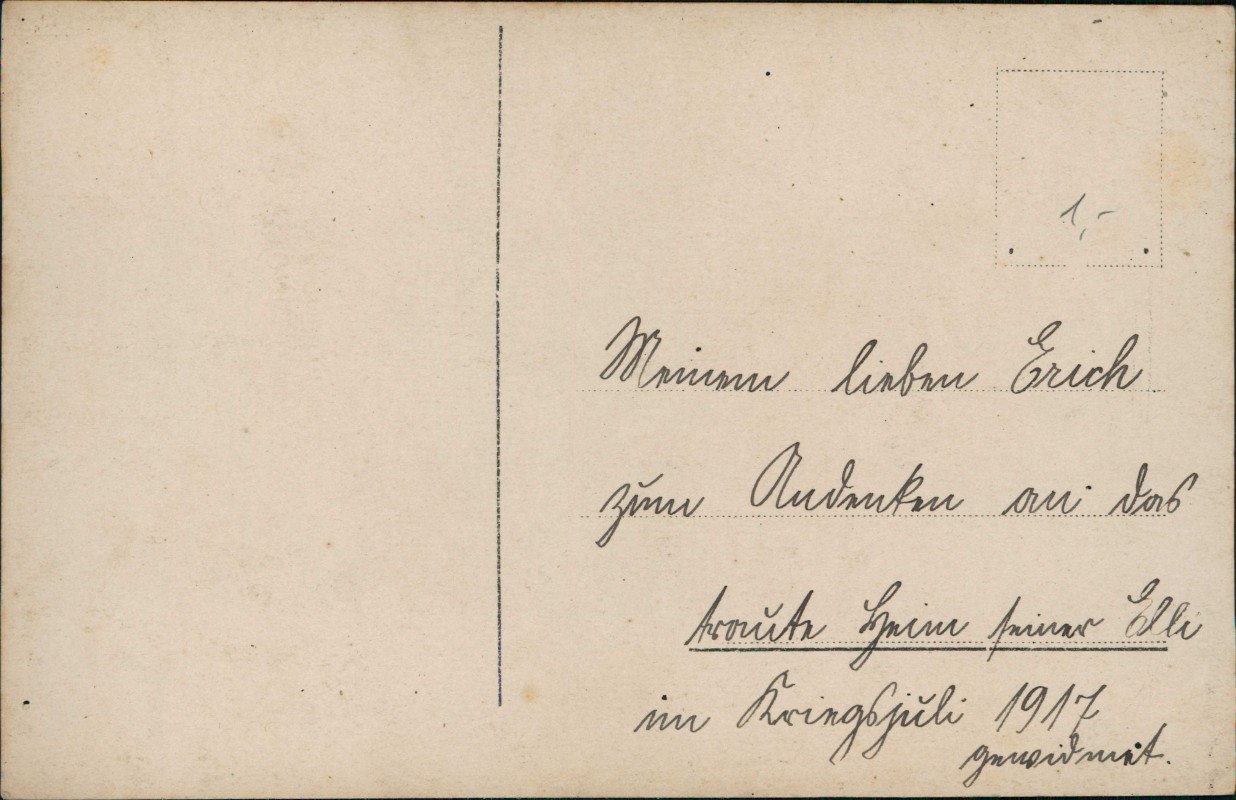 1,-
Meinem lieben Erich
zum Andenken an das
traute Heim seiner Elli
im Kriegsjuli 1917
gewidmet.